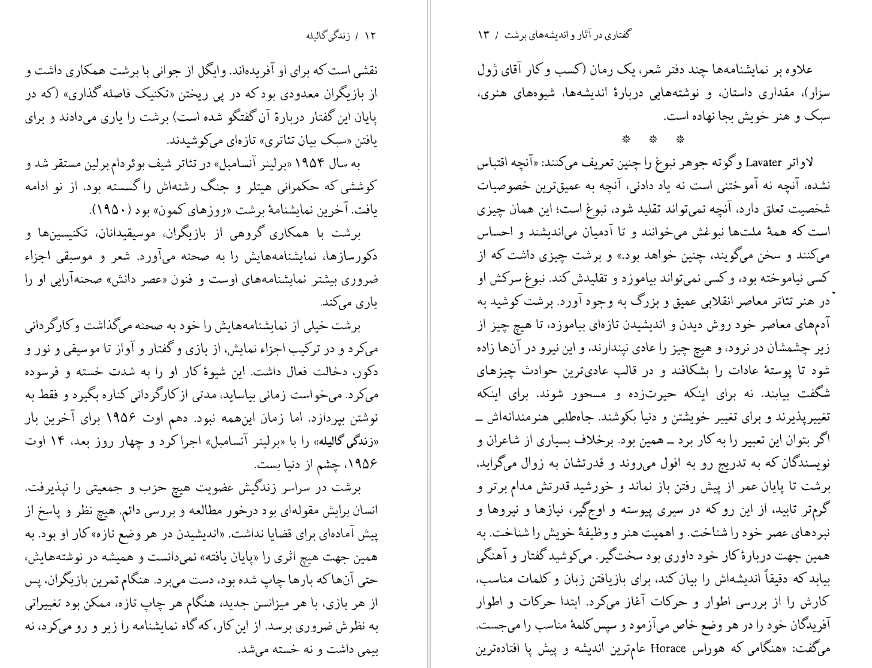 ۱۲ / زندگی گالیله
نقشی است که برای او آفریده‌اند. وایگل از جوانی با برشت همکاری داشت و
از بازیگران معدودی بود که در پی ریختن «تکنیک فاصله گذاری» (که در
پایان این گفتار دربارهٔ آن گفتگو شده است) برشت را یاری می‌دادند و برای
یافتن «سبک بیان تئاتری» تازه‌ای می‌کوشیدند.
به سال ۱۹۵۴ «برلینر آنسامبل» در تئاتر شیف بوئردام برلین مستقر شد و
کوششی که حکمرانی هیتلر و جنگ رشته‌اش را گسسته بود، از نو ادامه
یافت. آخرین نمایشنامهٔ برشت «روزهای کمون» بود (۱۹۵۰).
برشت با همکاری گروهی از بازیگران، موسیقیدانان، تکنیسین‌ها و
دکورسازها، نمایشنامه‌هایش را به صحنه می‌آورد. شعر و موسیقی اجزاء
ضروری بیشتر نمایشنامه‌های اوست و فنون «عصر دانش» صحنه‌آرایی او را
یاری می‌کند.
برشت خیلی از نمایشنامه‌هایش را خود به صحنه می‌گذاشت و کارگردانی
می‌کرد و در ترکیب اجزاء نمایش، از بازی و گفتار و آواز تا موسیقی و نور و
دکور، دخالت فعال داشت. این شیوهٔ کار او را به شدت خسته و فرسوده
می‌کرد. می‌خواست زمانی بیاساید، مدتی از کارگردانی کناره بگیرد و فقط به
نوشتن بپردازد. اما زمان این‌همه نبود. دهم اوت ۱۹۵۶ برای آخرین بار
«زندگی گالیله» را با «برلینر آنسامبل» اجرا کرد و چهار روز بعد، ۱۴ اوت
۱۹۵۶، چشم از دنیا بست.
برشت در سراسر زندگیش عضویت هیچ حزب و جمعیتی را نپذیرفت.
انسان برایش مقوله‌ای بود درخور مطالعه و بررسی دائم. هیچ نظر و پاسخ از
پیش آماده‌ای برای قضایا نداشت. «اندیشیدن در هر وضع تازه» کار او بود. به
همین جهت هیچ اثری را «پایان یافته» نمی‌دانست و همیشه در نوشته‌هایش،
حتی آن‌ها که بارها چاپ شده بود، دست می‌برد. هنگام تمرین بازیگران، پس
از هر بازی، با هر میزانسن جدید، هنگام هر چاپ تازه، ممکن بود تغییراتی
به نظرش ضروری برسد. از این کار، که گاه نمایشنامه را زیر و رو می‌کرد، نه
بیمی داشت و نه خسته می‌شد.
گفتاری در آثار و اندیشه‌های برشت / ۱۳
علاوه بر نمایشنامه‌ها چند دفتر شعر، یک رمان (کسب و کار آقای ژول
سزار)، مقداری داستان، و نوشته‌هایی دربارهٔ اندیشه‌ها، شیوه‌های هنری،
سبک و هنر خویش بجا نهاده است.
* * *
لاواتر Lavater و گوته جوهر نبوغ را چنین تعریف می‌کنند: «آنچه اقتباس
نشده، آنچه نه آموختنی است نه یاد دادنی، آنچه به عمیق‌ترین خصوصیات
شخصیت تعلق دارد، آنچه نمی‌تواند تقلید شود، نبوغ است؛ این همان چیزی
است که همهٔ ملت‌ها نبوغش می‌خوانند و تا آدمیان می‌اندیشند و احساس
می‌کنند و سخن می‌گویند، چنین خواهد بود.» و برشت چیزی داشت که از
کسی نیاموخته بود، و کسی نمی‌تواند بیاموزد و تقلیدش کند. نبوغ سرکش او
در هنر تئاتر معاصر انقلابی عمیق و بزرگ به وجود آورد. برشت کوشید به
آدم‌های معاصر خود روش دیدن و اندیشیدن تازه‌ای بیاموزد، تا هیچ چیز از
زیر چشمشان در نرود، و هیچ چیز را عادی نپندارند، و این نیرو در آن‌ها زاده
شود تا پوستهٔ عادات را بشکافند و در قالب عادی‌ترین حوادث چیزهای
شگفت بیابند. نه برای اینکه حیرت‌زده و مسحور شوند. برای اینکه
تغییرپذیرند و برای تغییر خویشتن و دنیا بکوشند. جاه‌طلبی هنرمندانه‌اش ــ
اگر بتوان این تعبیر را به کار برد ــ همین بود. برخلاف بسیاری از شاعران و
نویسندگان که به تدریج رو به افول می‌روند و قدرتشان به زوال می‌گراید،
برشت تا پایان عمر از پیش رفتن باز نماند و خورشید قدرتش مدام برتر و
گرم‌تر تابید، از این رو که در سیری پیوسته و اوج‌گیر، نیازها و نیروها و
نبردهای عصر خود را شناخت. و اهمیت هنر و وظیفهٔ خویش را شناخت. به
همین جهت دربارهٔ کار خود داوری بود سخت‌گیر. می‌کوشید گفتار و آهنگی
بیابد که دقیقاً اندیشه‌اش را بیان کند، برای بازیافتن زبان و کلمات مناسب،
کارش را از بررسی اطوار و حرکات آغاز می‌کرد. ابتدا حرکات و اطوار
آفریدگان خود را در هر وضع خاص می‌آزمود و سپس کلمهٔ مناسب را می‌جست.
می‌گفت: «هنگامی که هوراس Horace عام‌ترین اندیشه و پیش پا افتاده‌ترین